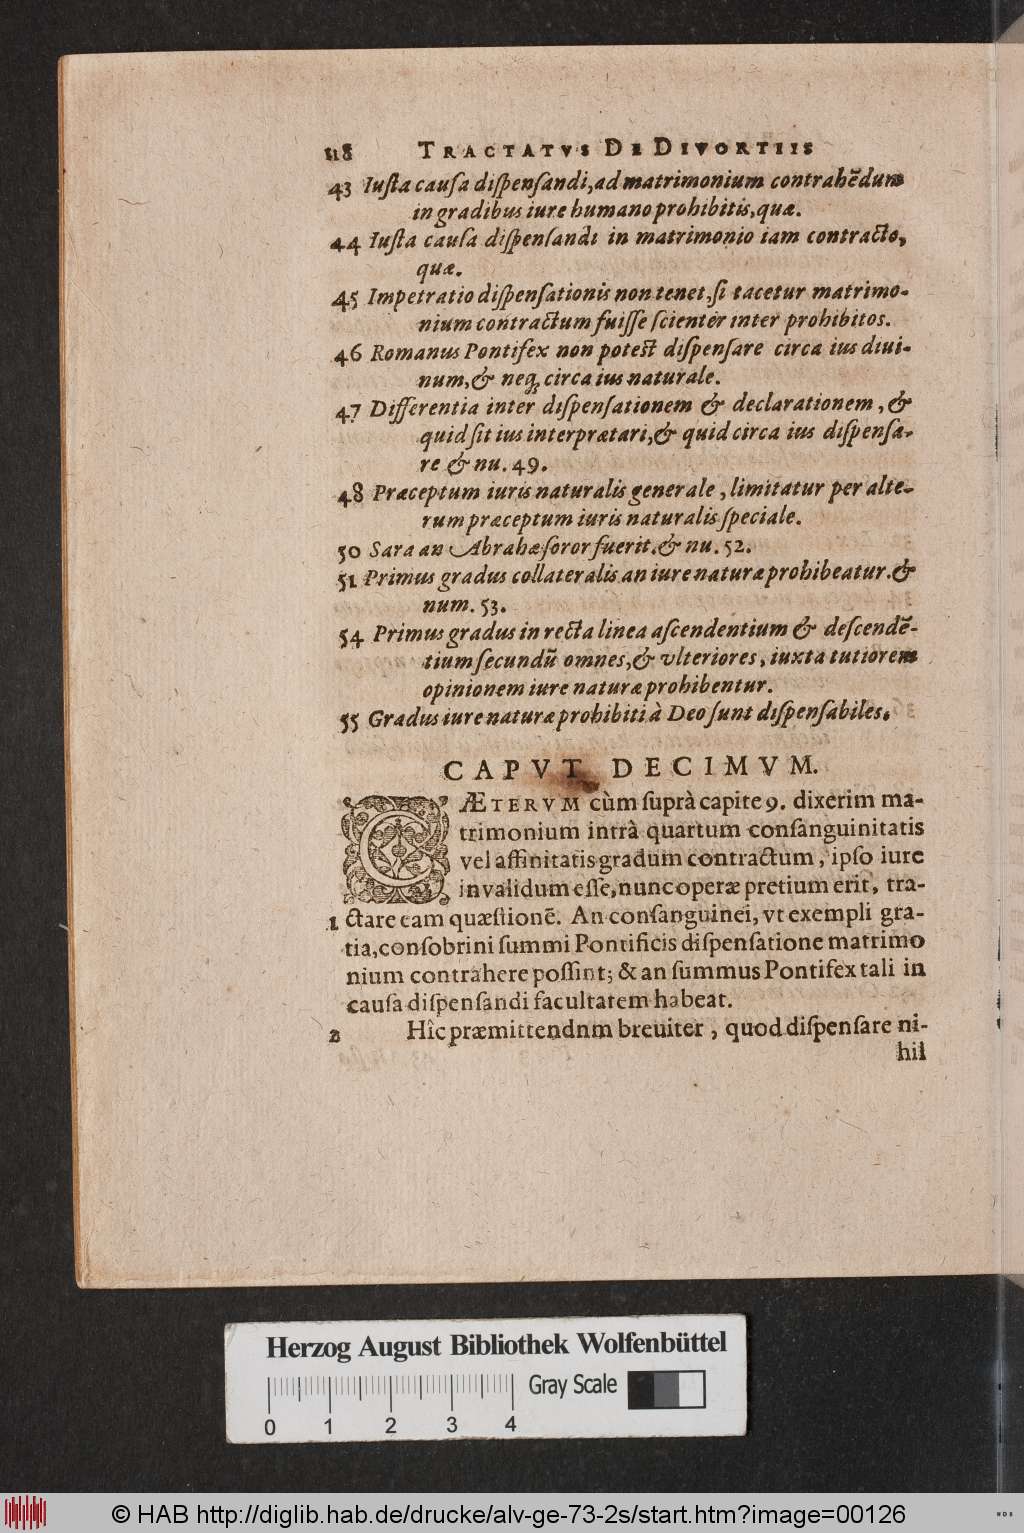 118 TRACTATVS DE DIVORTIIS
43 Iusta causa dispensandi, ad matrimonium contrahẽdum
in gradibus iure humano prohibitis, quæ.
44 Iusta causa dispensandi in matrimonio iam contracto,
quæ.
45 Impetratio dispensationis non tenet, si tacetur matrimo-
nium contractum fuisse scienter inter prohibitos.
46 Romanus Pontifex non potest dispensare circa ius diui-
num, & neq; circa ius naturale.
47 Differentia inter dispensationem & declarationem, &
quid sit ius interprætari, & quid circa ius dispensa-
re & nu. 49.
48 Præceptum iuris naturalis generale, limitatur per alte-
rum præceptum iuris naturalis speciale.
50 Sara an Abrahæ soror fuerit. & nu. 52.
51 Primus gradus collateralis an iure naturæ prohibeatur. &
num. 53.
54 Primus gradus in recta linea ascendentium & descendẽ-
tium secundũ omnes, & vlteriores, iuxta tutiorem
opinionem iure naturæ prohibentur.
55 Gradus iure naturæ prohibiti à Deo sunt dispensabiles.
CAPVT DECIMVM.
CÆTERVM cùm suprà capite 9. dixerim ma-
trimonium intrà quartum consanguinitatis
vel affinitatis gradum contractum, ipso iure
invalidum esse, nunc operæ pretium erit, tra-
1 ctare eam quæstionẽ. An consanguinei, vt exempli gra-
tia, consobrini summi Pontificis dispensatione matrimo
nium contrahere possint; & an summus Pontifex tali in
causa dispensandi facultatem habeat.
2 Hîc præmittendnm breuiter, quod dispensare ni-
hil
Herzog August Bibliothek Wolfenbüttel
Gray Scale
0 1 2 3 4
© HAB http://diglib.hab.de/drucke/alv-ge-73-2s/start.htm?image=00126